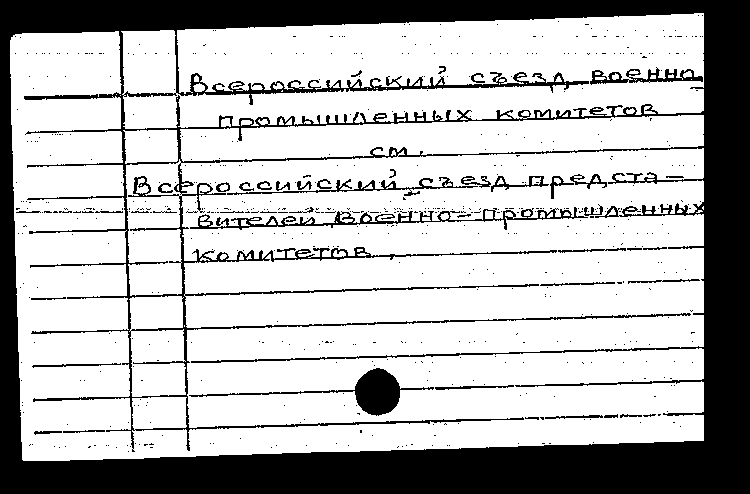 Всероссийский съезд военно
промышленных комитетов
см.
Всероссийский съезд предста-
вителей военно-промышленных
комитетов.